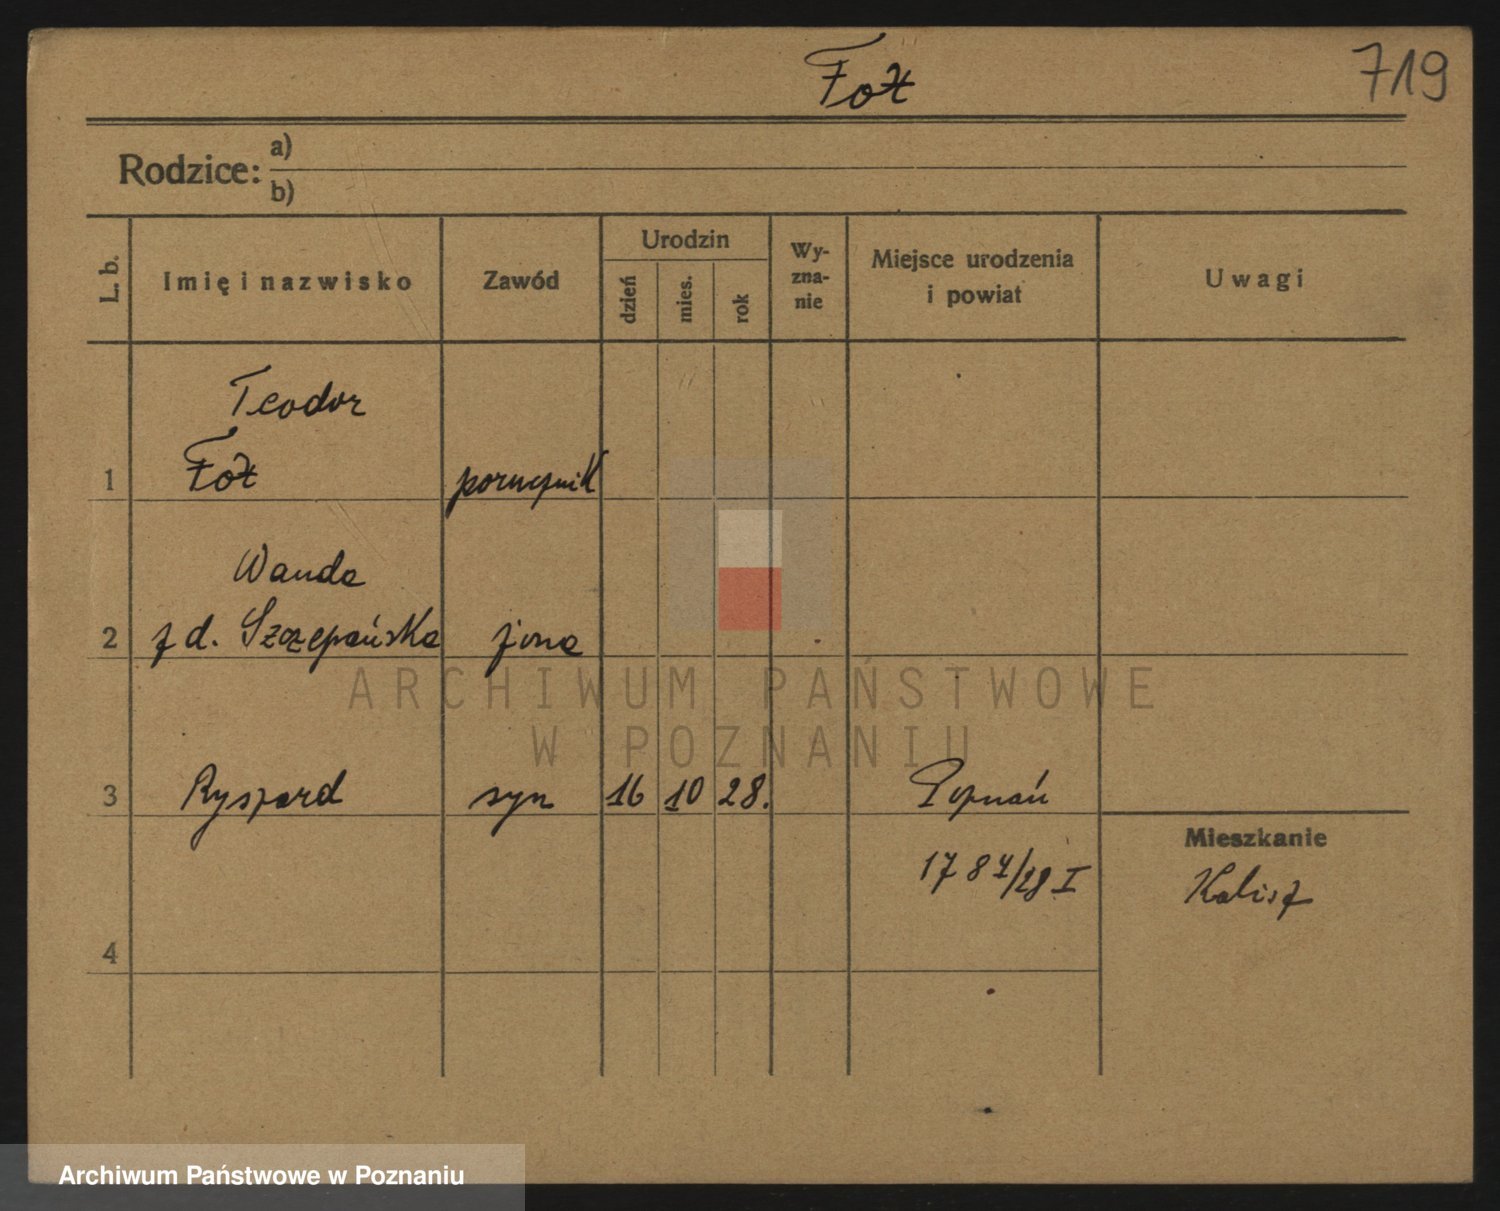 Fołt
719
Rodzice: a)
b)
L. b.
Imię i nazwisko
Zawód
Urodzin
dzień
mies.
rok
Wy-
zna-
nie
Miejsce urodzenia
i powiat
Uwagi
Teodor
1 Fołt porucznik
Wanda
2 z d. Szczepańska żona
ARCHIWUM PAŃSTWOWE
W POZNANIU
3 Ryszard syn 16 10 28. Poznań
Mieszkanie
1784/28 I Kalisz
4
Archiwum Państwowe w Poznaniu